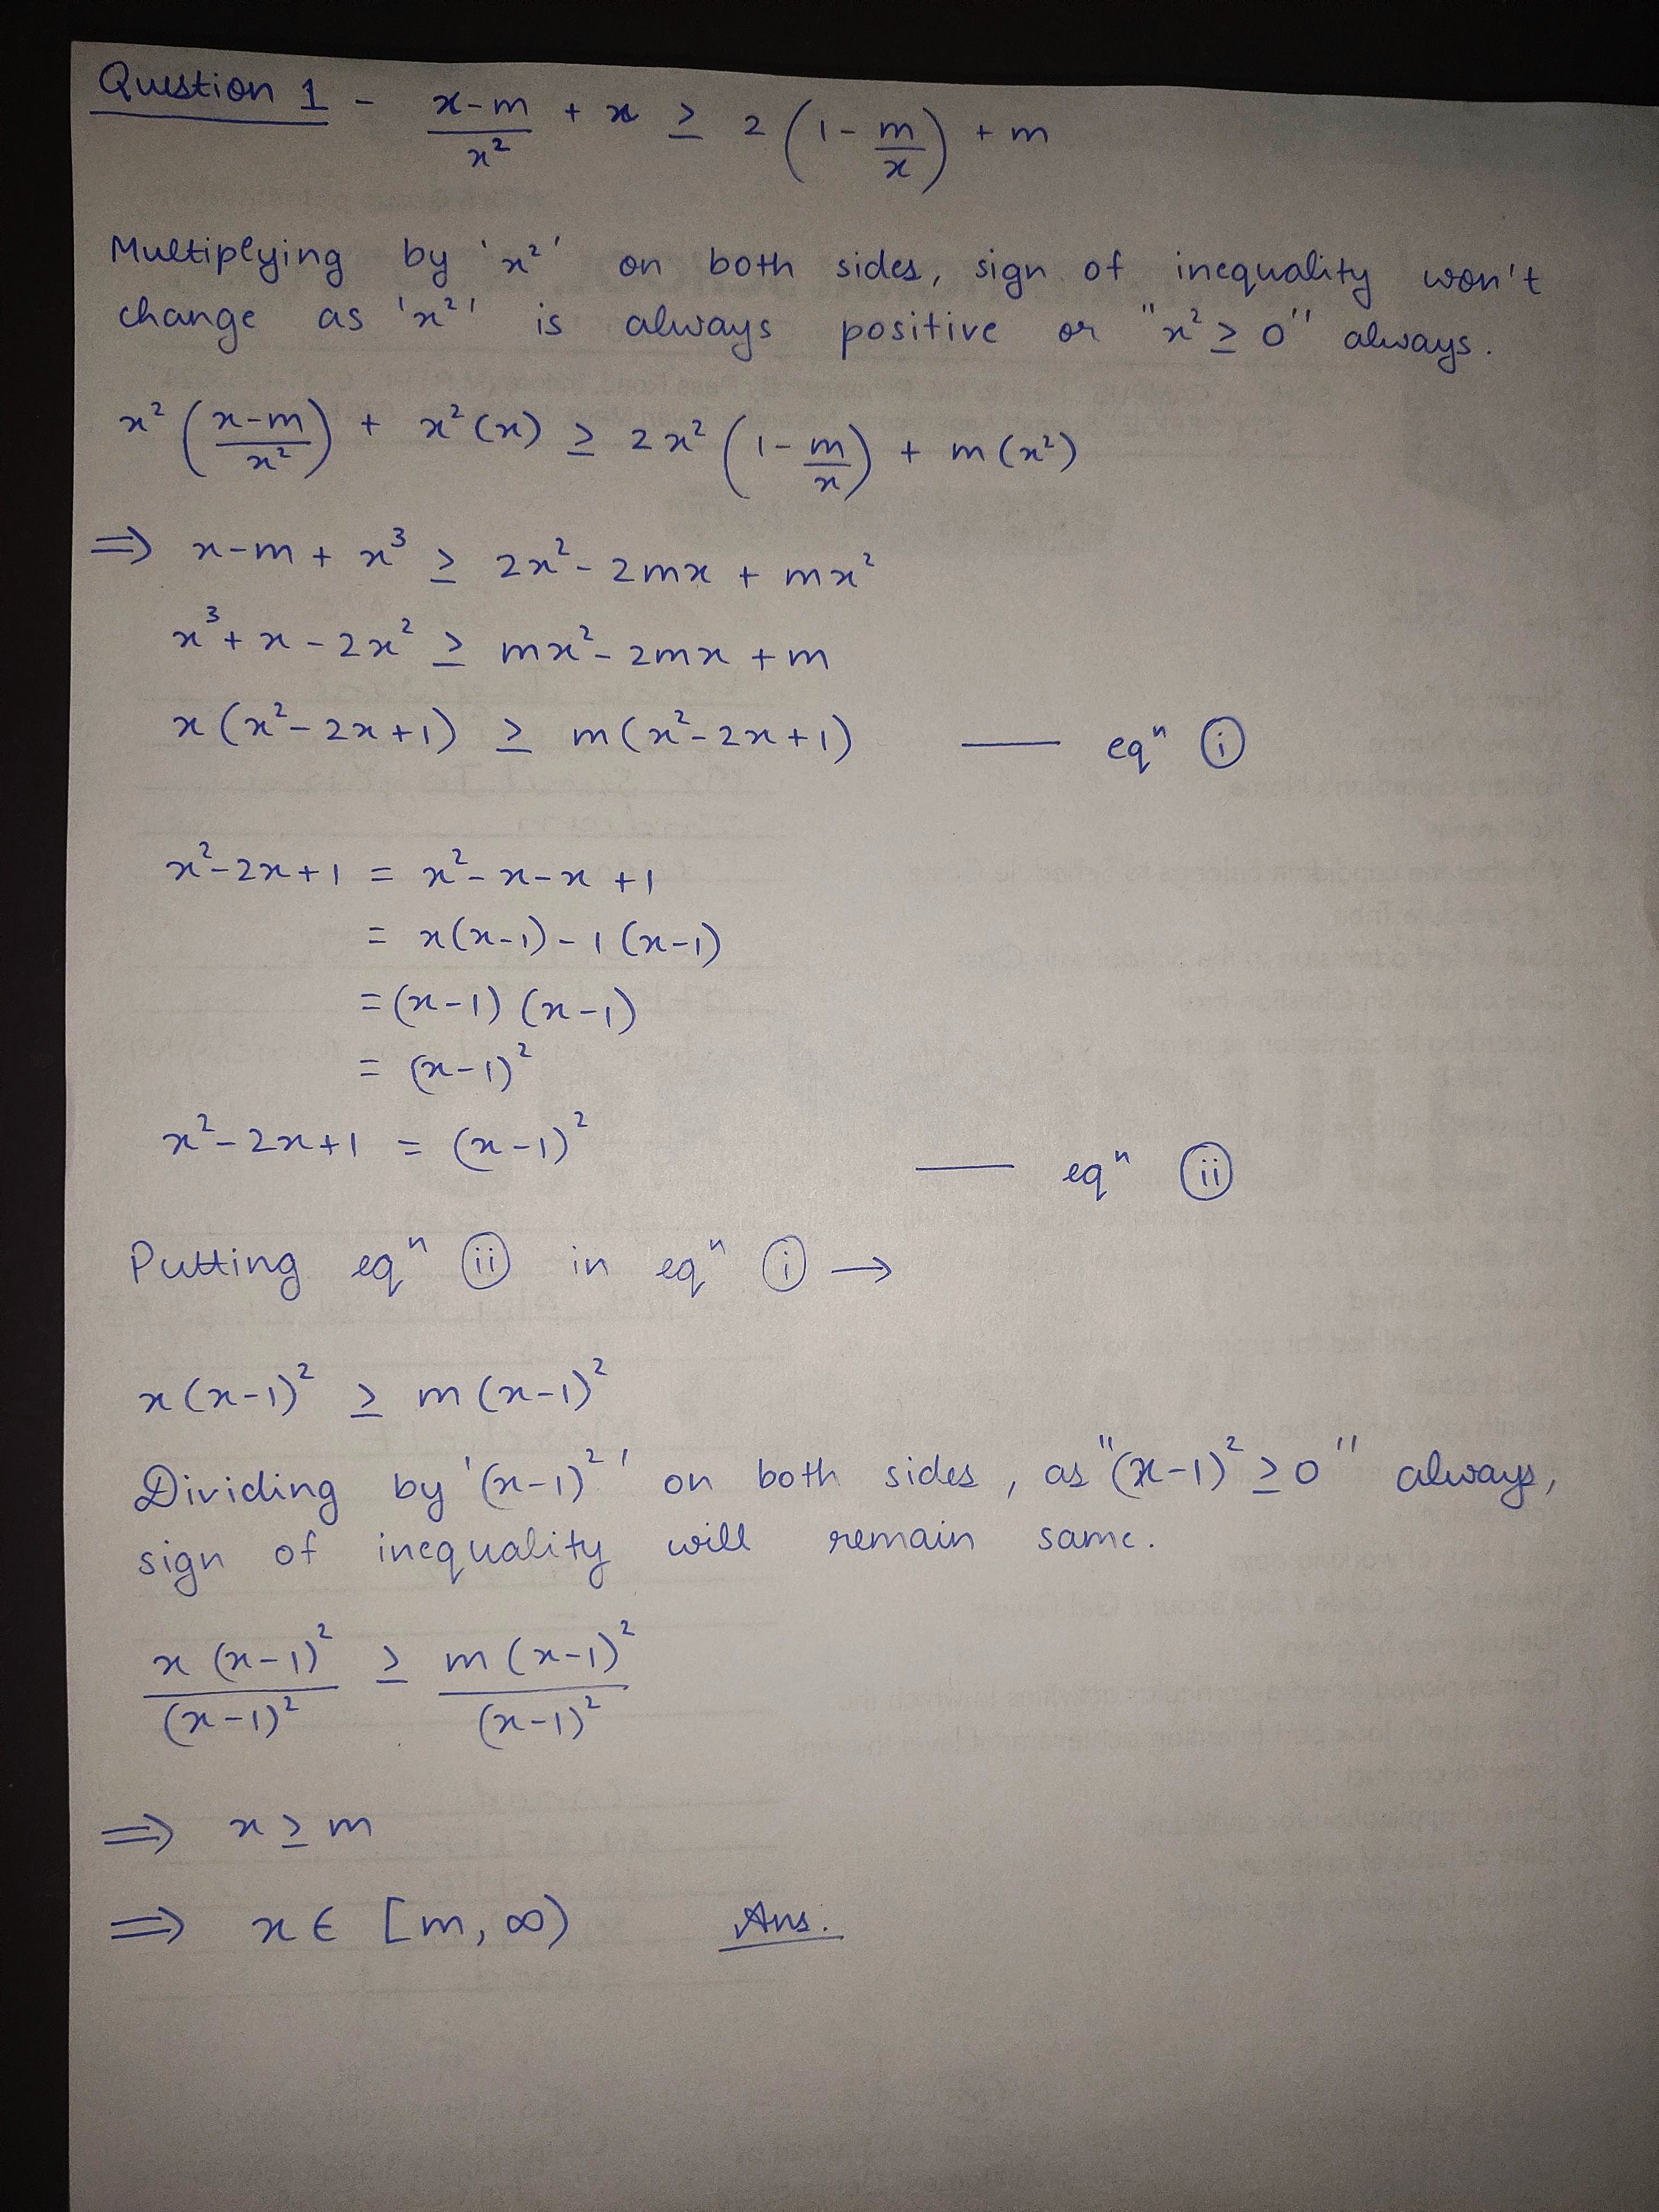 Question 1 - (x-m)/x² + x ≥ 2(1 - m/x) + m
Multiplying by 'x²' on both sides, sign of inequality won't
change as 'x²' is always positive or "x² ≥ 0" always.
x²((x-m)/x²) + x²(x) ≥ 2x²(1 - m/x) + m(x²)
⇒ x-m + x³ ≥ 2x² - 2mx + mx²
x³ + x - 2x² ≥ mx² - 2mx + m
x(x² - 2x + 1) ≥ m(x² - 2x + 1) — eqⁿ (i)
x² - 2x + 1 = x² - x - x + 1
= x(x-1) - 1(x-1)
= (x-1) (x-1)
= (x-1)²
x² - 2x + 1 = (x-1)² — eqⁿ (ii)
Putting eqⁿ (ii) in eqⁿ (i) →
x(x-1)² ≥ m(x-1)²
Dividing by '(x-1)²' on both sides, as "(x-1)² ≥ 0" always,
sign of inequality will remain same.
x(x-1)²/(x-1)² ≥ m(x-1)²/(x-1)²
⇒ x ≥ m
⇒ x ∈ [m, ∞) Ans.